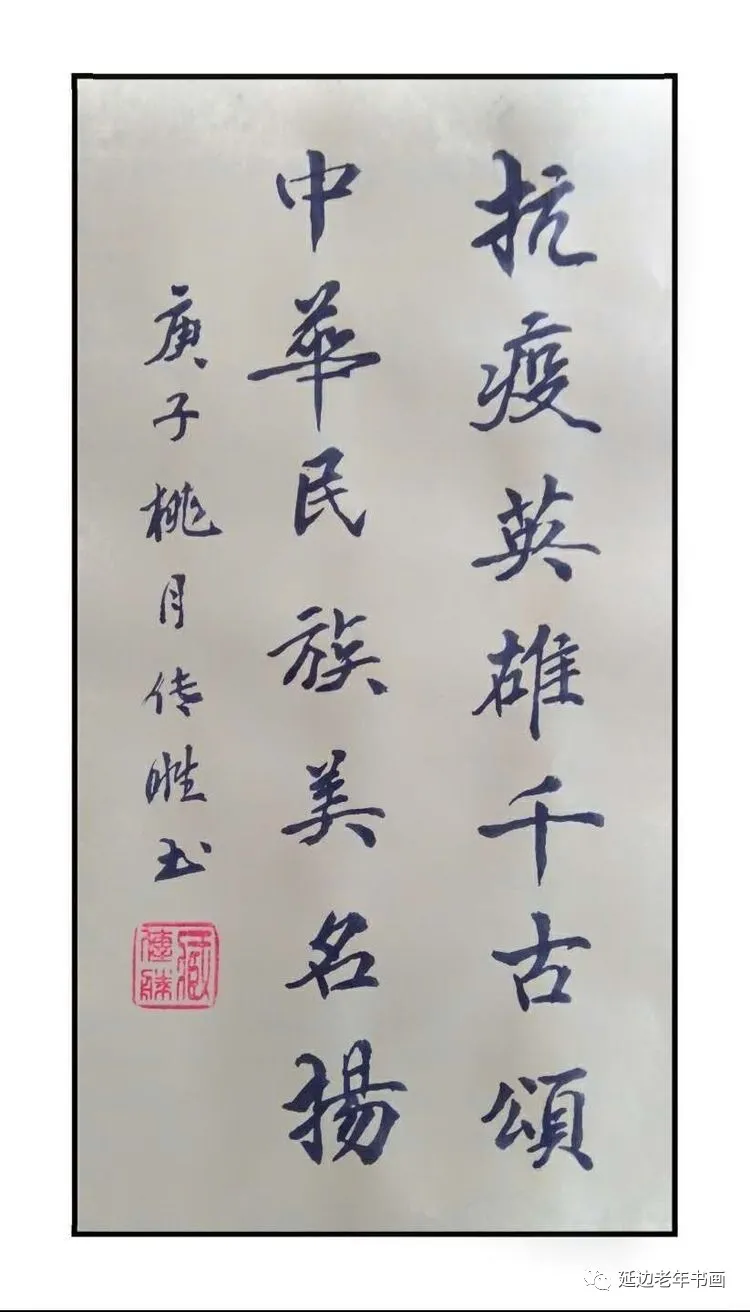 抗疫英雄千古頌
中華民族美名揚
庚子桃月传胜书
延边老年书画